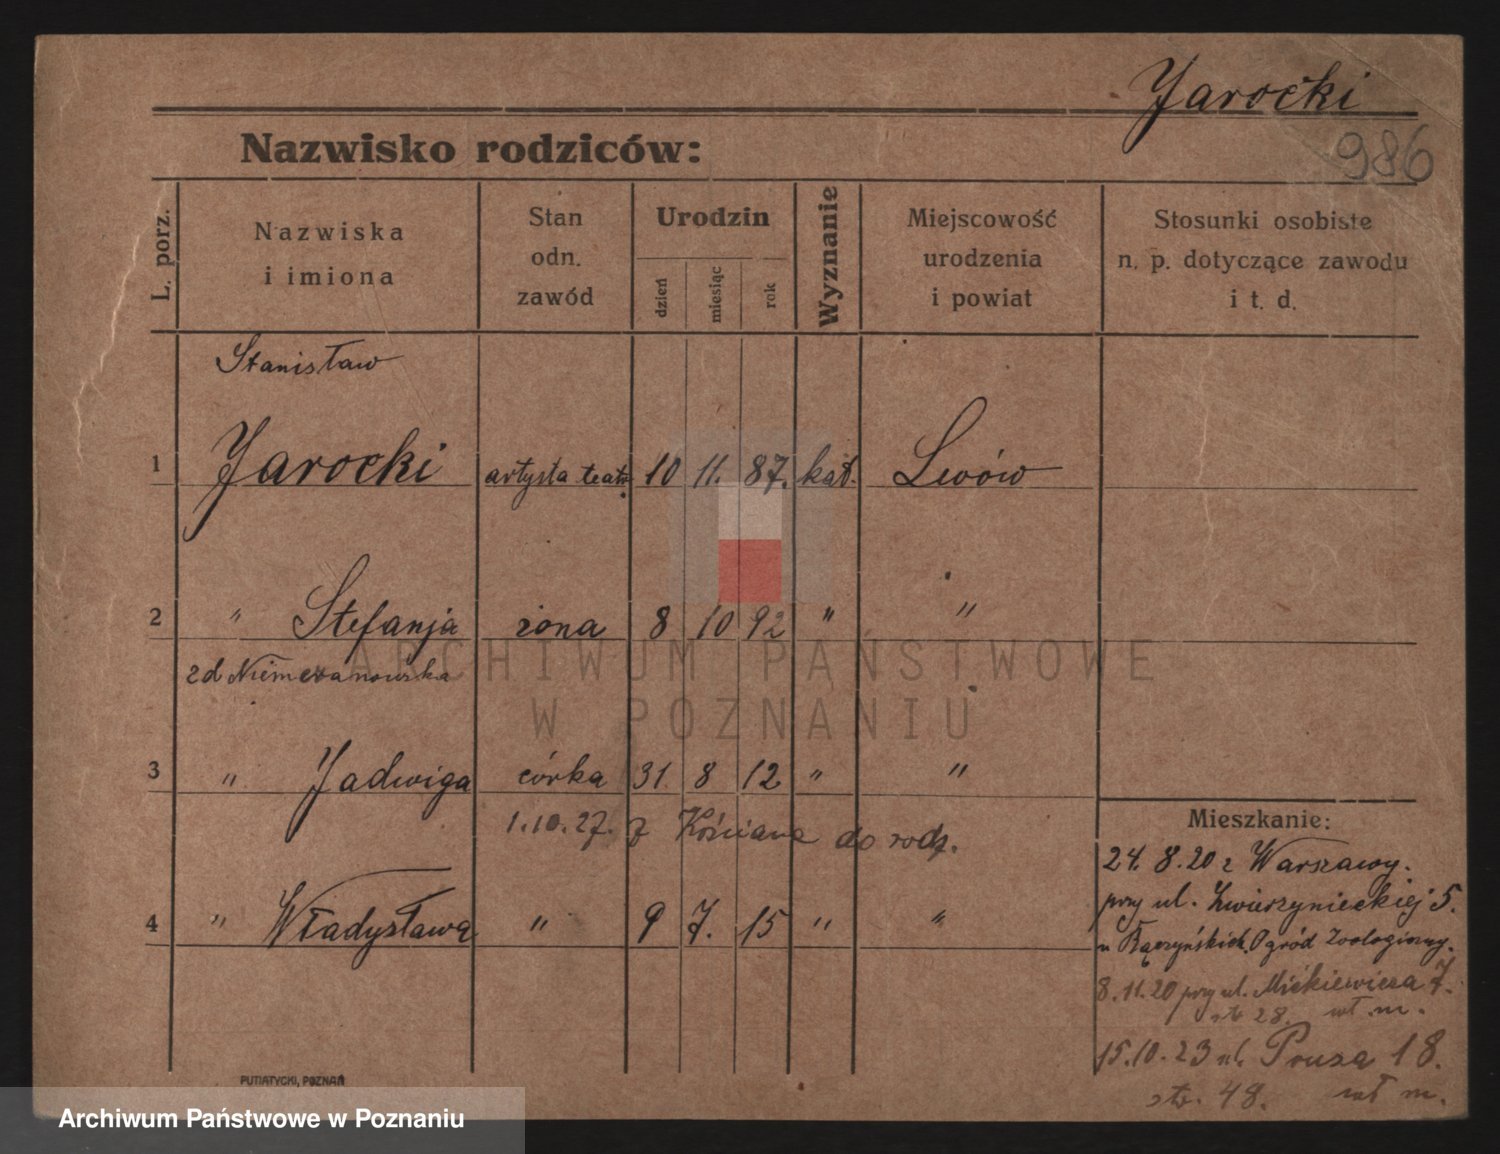 Jarocki
986
Nazwisko rodziców:
L. porz.
Nazwiska
i imiona
Stan
odn.
zawód
Urodzin
dzień
miesiąc
rok
Wyznanie
Miejscowość
urodzenia
i powiat
Stosunki osobiste
n. p. dotyczące zawodu
i t. d.
Stanisław
1 Jarocki artysta teatr. 10 11. 87. kat. Lwów
2 " Stefanja żona 8 10 92 " "
zd Niemczanowska
3 " Jadwiga córka 31 8 12 " "
1.10.27. z Kościana do rodz.
4 " Władysława " 9 7. 15 " "
Mieszkanie:
24. 8. 20 z Warszawy.
przy ul. Zwierzynieckiej 5.
u Ogród Zoologiczny.
8. 11. 20 przy ul. Mickiewicza 7.
str 28. wł. m.
15. 10. 23 ul. Prusa 18.
str. 48. wł m.
PUTIATYCKI, POZNAŃ
ARCHIWUM PAŃSTWOWE
W POZNANIU
Archiwum Państwowe w Poznaniu